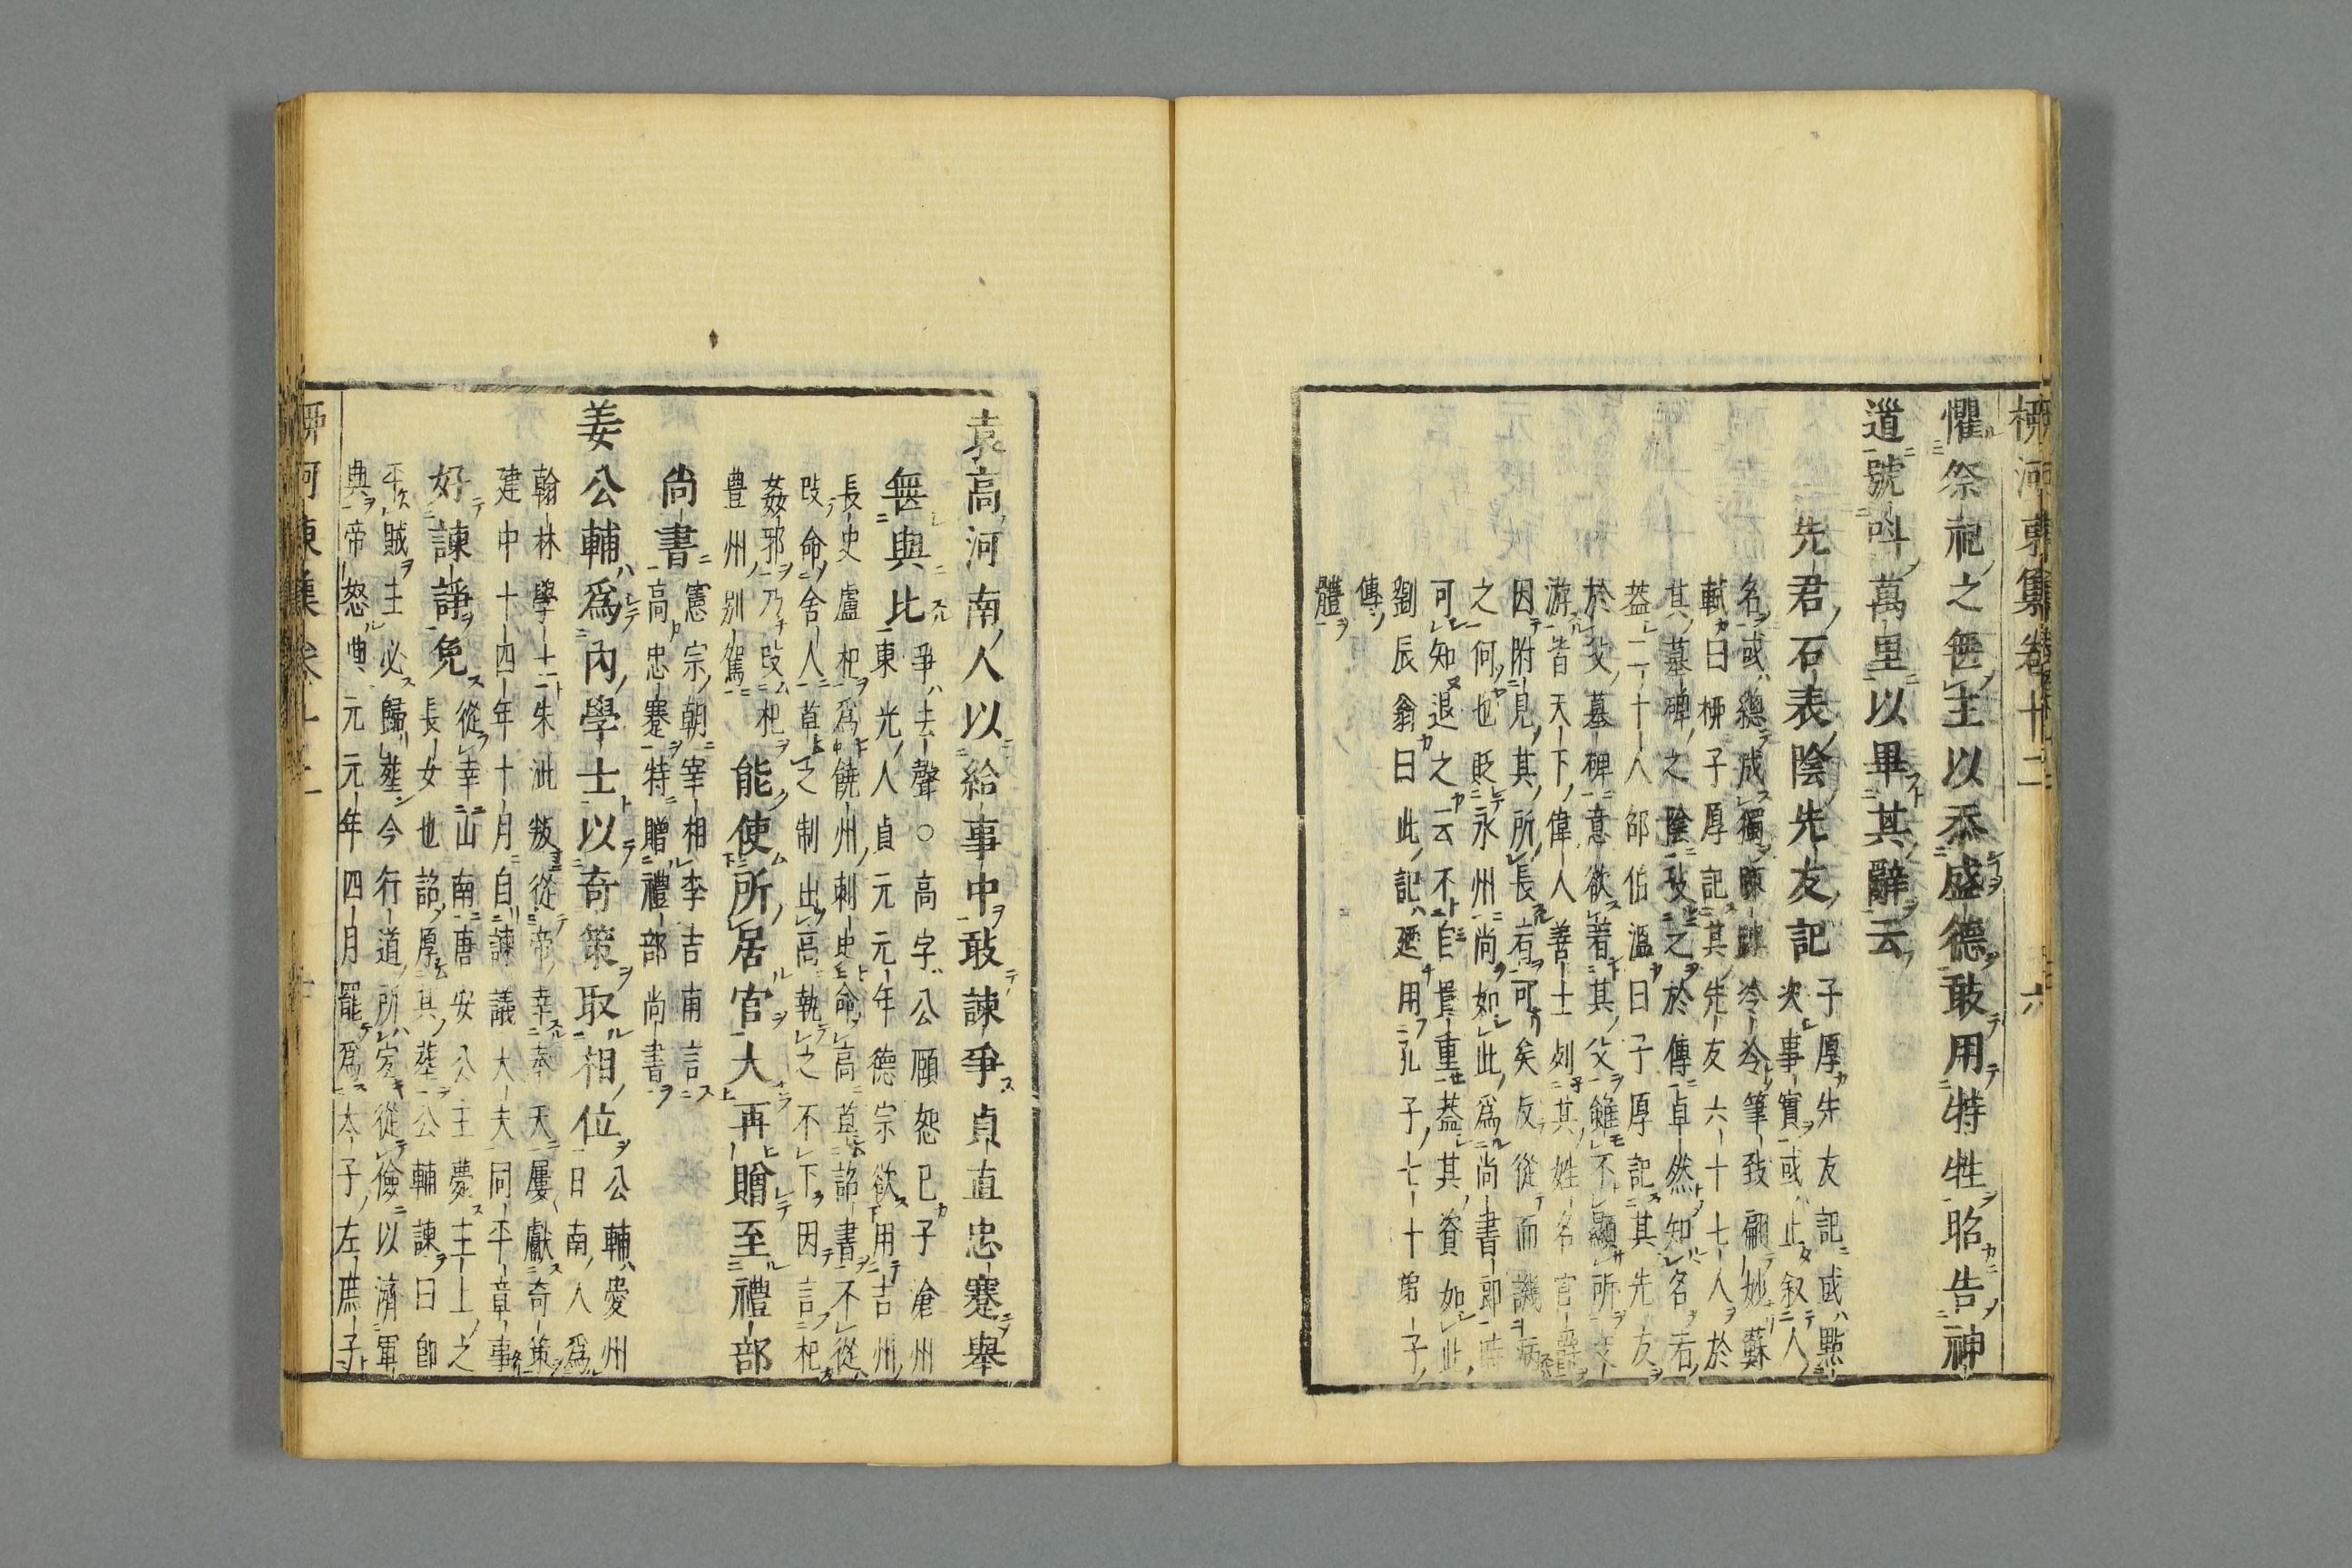 柳河東集卷十二 六
懼祭祀之無主以忝盛德敢用特牲昭告神
道號呌萬里以畢其辭云
先君石表陰先友記
子厚先友記或點
次事實或止叙人
名或總成獨冷冷筆致翩妙蘇
軾曰柳子厚記其先友六十七人於
其墓碑之陰攷之於傳卓然知名者
葢二十人邵伯溫曰子厚記其先友
於父墓碑意欲著其父雖不顯所交
游皆天下偉人善士列其姓名官爵
因附見其所長者可矣反從而譏病
之何也貶永州尚如此為尚書郎時
可知退之云不自貴重葢其資如此
劉辰翁曰此記廼用孔子七十弟子
傳
體
袁高河南人以給事中敢諫爭貞直忠蹇舉
無與比
爭去聲○高字公頤恕已子滄州
東光人貞元元年德宗欲用吉州
長史盧杞為饒州刺史命高草詔書不從
改命舍人草之制出高執之不下因言杞
姦邪乃改杞
豊州別駕
能使所居官大再贈至禮部
尚書
憲宗朝宰相李吉甫言
高忠蹇特贈禮部尚書
姜公輔為內學士以奇策取相位
公輔愛州
日南人為
翰林學士朱泚叛從帝幸奉天屢獻奇策
建中十四年十月自諫議大夫同平章事
好諫諍免
從幸山南唐安公主薨主上之
長女也詔厚其葬公輔諫曰即
平賊主必歸葬今行道所宜從儉以濟軍
典帝怒典元元年四月罷為太子左庶子
柳河東集卷十二